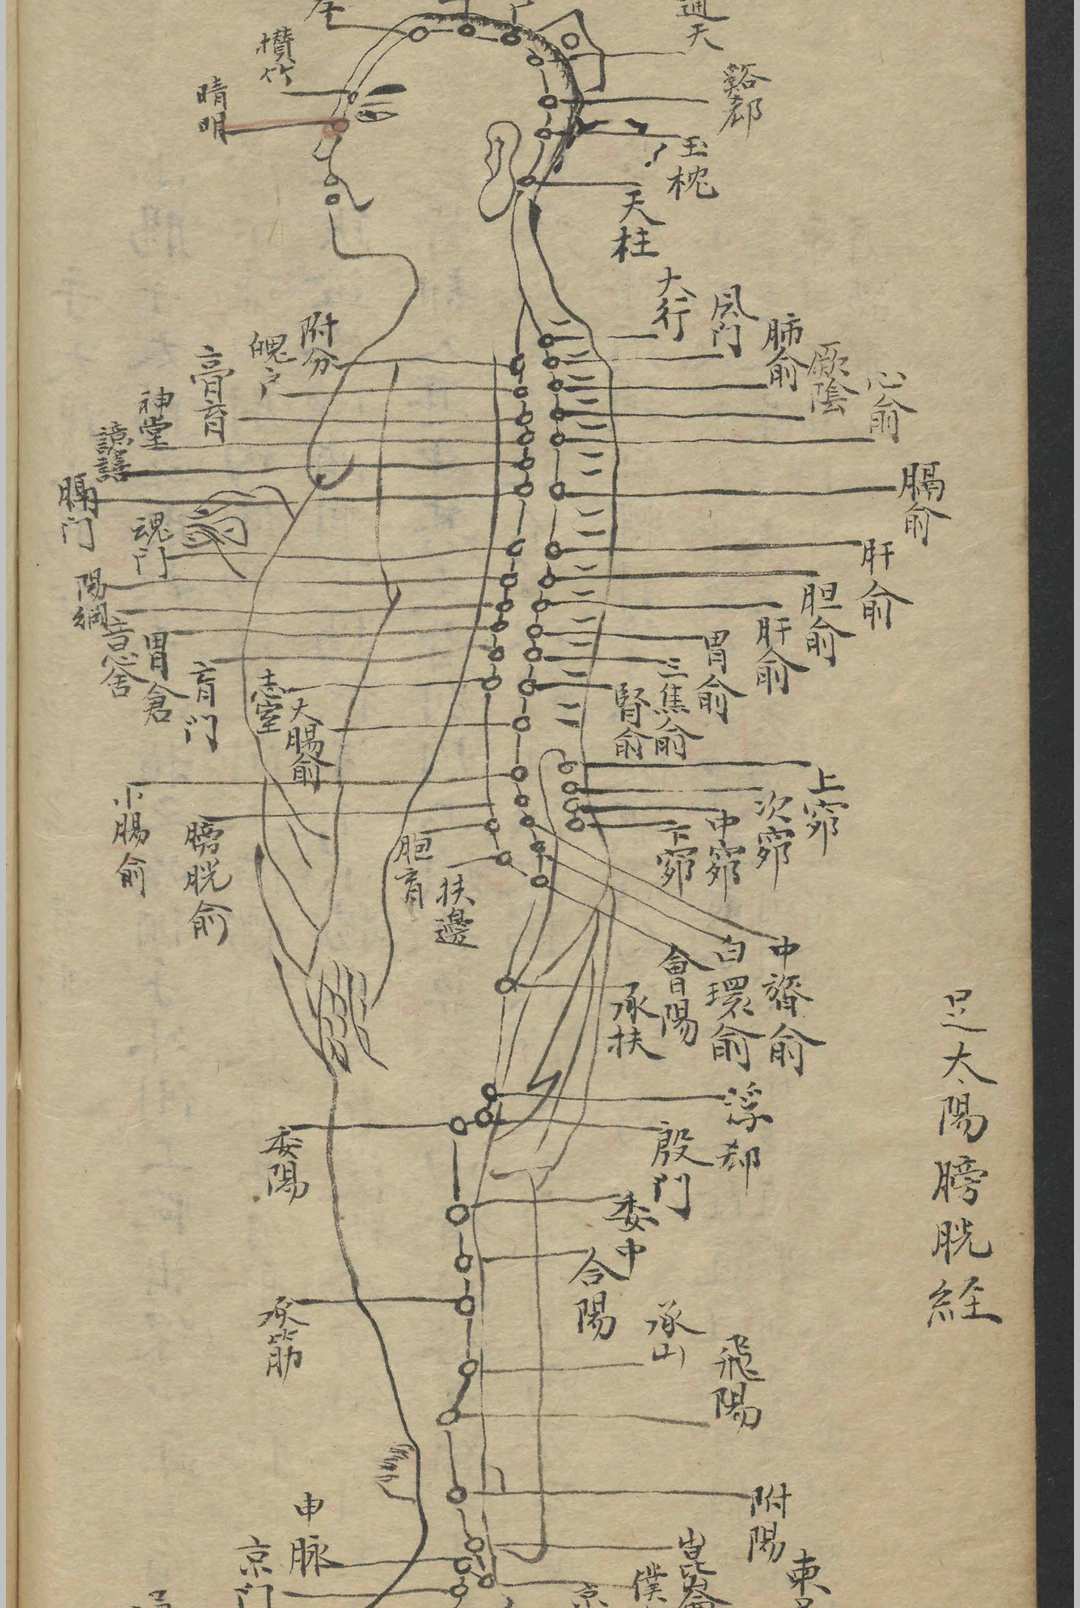 足太陽膀胱経
通天
玉枕
天柱
大行
風門
肺俞
厥陰
心俞
膈俞
肝俞
胆俞
肝俞
胃俞
三焦俞
腎俞
上窌
次窌
中窌
下窌
中膂俞
白環俞
會陽
承扶
浮郄
殷門
委中
合陽
承山
飛陽
附陽
崑崙
僕
京
東
攅竹
晴明
附分
魄户
膏肓
神堂
譩譆
膈門
魂門
陽綱
意舍
胃倉
肓門
志室
大腸俞
小腸俞
膀胱俞
胞肓
扶邊
委陽
承筋
申脈
京門